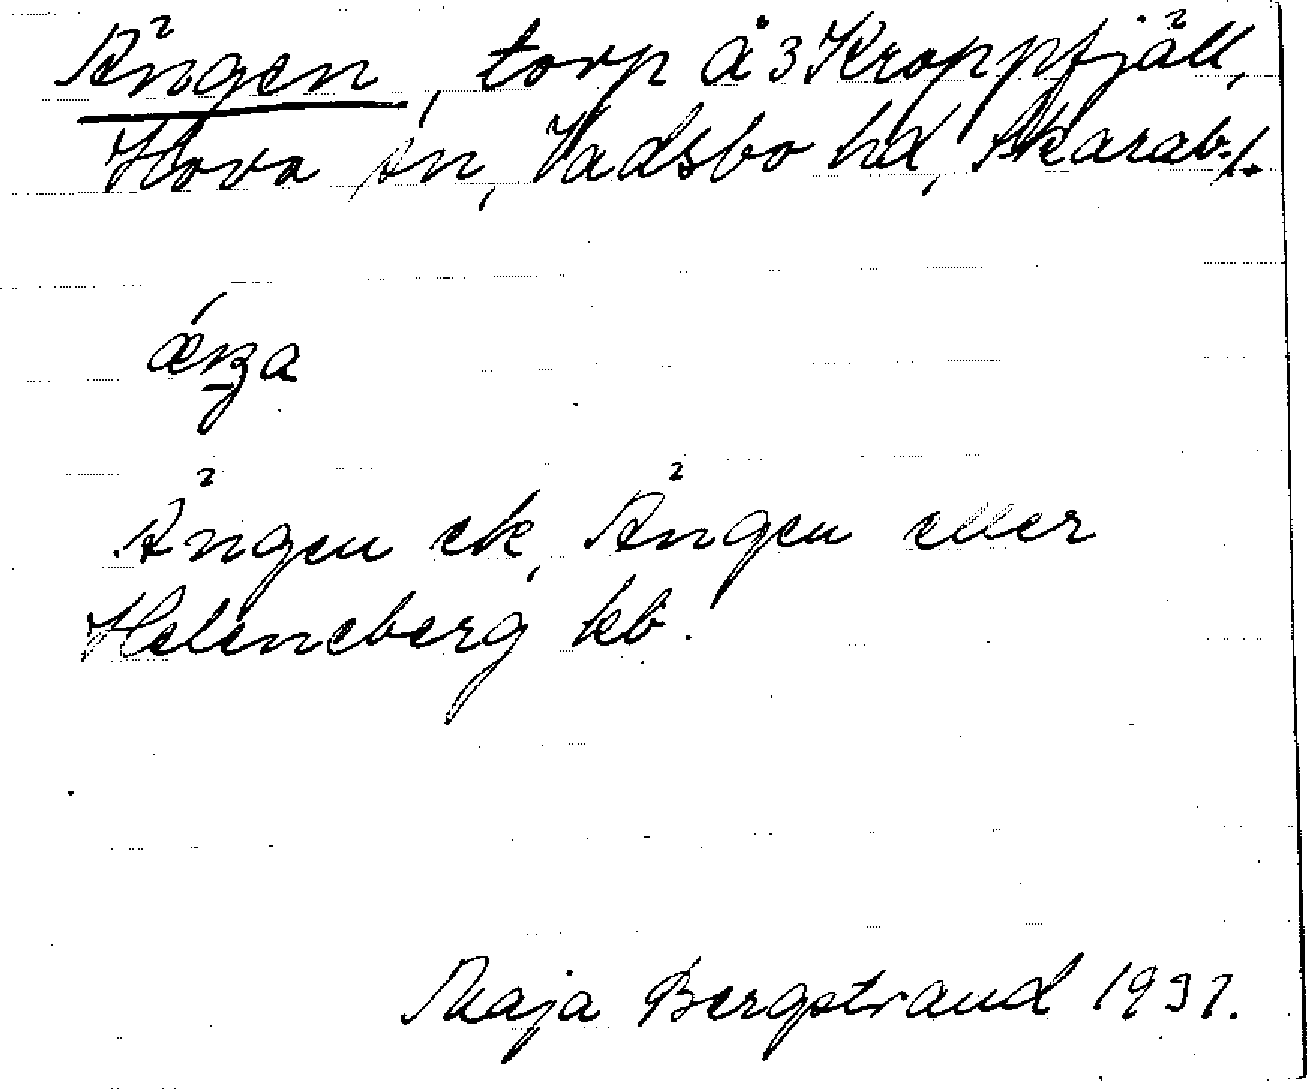 Ängen, torp å 3 Kroppfjäll,
Hova sn, Vadsbo hd, Skarab. l.
Ängen ek, Ängen eller
Heleneberg kb.
Maja Bergstrand 1931.